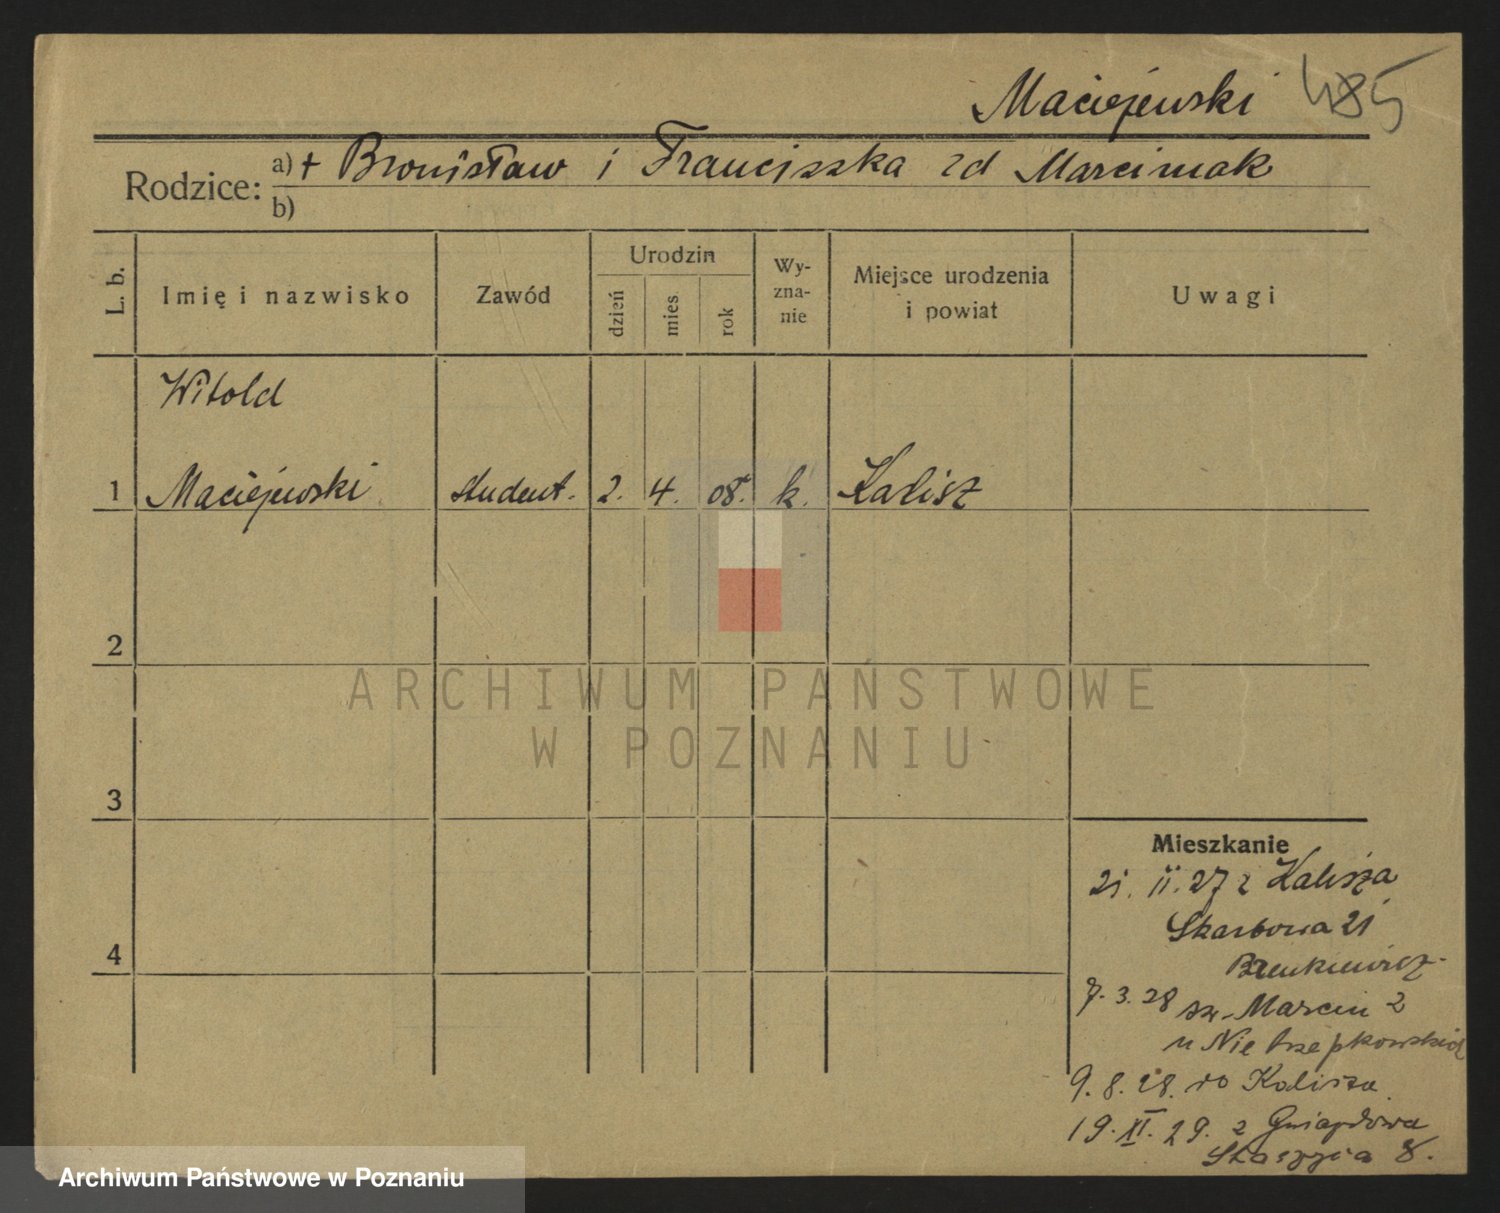 Maciejewski 485
Rodzice: a) + Bronisław i Franciszka zd Marciniak
b)
L. b. Imię i nazwisko Zawód Urodzin dzień mies rok Wy-zna-nie Miejsce urodzenia i powiat Uwagi
Witold
1 Maciejewski student. 2. 4. 08. k. Kalisz
2
ARCHIWUM PAŃSTWOWE
W POZNANIU
3
Mieszkanie
21. II. 27 z Kalisza
Skarbowa 21
4
7. 3. 28 św. Marcin 2
u
9. 8. 28. do Kalisza
19. XI. 29. z
Staszyca 8.
Archiwum Państwowe w Poznaniu